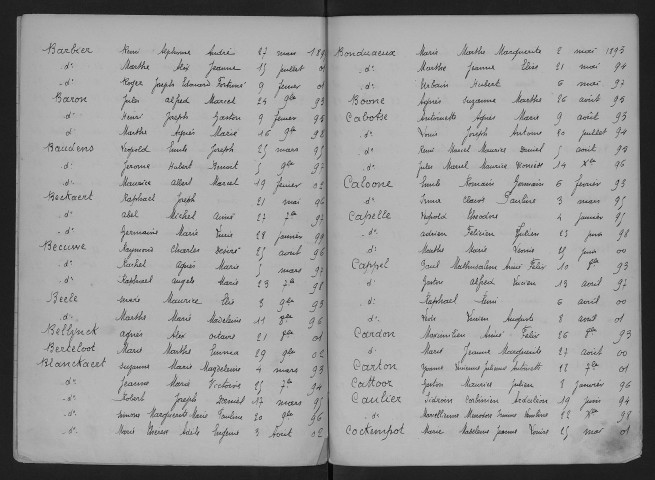 Barbier René Alphonse André 27 mai 189
d° Marthe Alix Jeanne 15 juillet 01
d° Roger Joseph Edouard Fortuné 9 février 01
Baron Jules Alfred Marcel 24 9bre 93
d° Henri Joseph Gaston 9 février 95
d° Marthe Agnès Marie 16 9bre 98
Baudens Léopold Emile Joseph 25 mars 95
d° Jérome Hubert Benoit 5 9bre 97
d° Maurice Albert Marcel 19 février 02
Beckaert Raphael Joseph 21 mai 96
d° Abel Michel Aimé 27 7bre 97
d° Germaine Marie Lucie 28 janvier 99
Becuwe Raymond Charles Désiré 25 août 96
d° Rachel Agnès Marie 5 mars 97
d° Raphael Angèle Marie 23 7bre 98
Beele Marie Maurice Elie 3 9bre 93
d° Marthe Marie Madeleine 11 8bre 96
Bellynck Agnès Alix Octavie 21 8bre 01
Berteloot Marie Marthe Emma 29 9bre 02
Blanckaert Suzanne Marie Magdeleine 4 mars 93
d° Jeanne Marie Victoire 25 7bre 94
d° Robert Joseph Daniel 17 mars 95
d° Simone Marguerite Marie Pauline 20 9bre 96
d° Marie Thérèse Adèle Eugénie 3 Avril 02
Bonduaeux Marie Marthe Marguerite 2 mai 1893
d° Marthe Jeanne Elise 21 mai 94
d° Urbain Hubert 6 mai 97
Boone Agnès Suzanne Marthe 26 août 95
Cabotse Antoinette Agnès Marie 9 août 93
d° Louis Joseph Antoine 20 juillet 94
d° René Marcel Maurice Daniel 5 août 95
d° Jules Marcel Maurice 14 Xbre 96
Calcone Emile Romain Germain 6 février 93
d° Irma Claire Pauline 3 mars 95
Capelle Léopold Théodore 4 janvier 95
d° Adrien Félicien Julien 23 juin 98
d° Marthe Marie Léonie 25 juin 00
Cappel Paul Mathusalem Aimé Félix 10 8bre 93
d° Gaston Alfred Lucien 13 août 97
d° Raphael Remi 6 août 00
d° Lucien Auguste 8 août 01
Cardon Maximilien Aimé Félix 26 8bre 93
d° Marie Jeanne Marguerite 27 août 00
Carton Yvonne Lucienne Julienne Antoinette 12 7bre 01
Cattoor Gaston Maurice Julien 8 janvier 96
Caulier Isidore Cornélien 19 juin 94
d° Marcellienne Mercedes 22 Xbre 98
Cockempot Marie Madeleine Jeanne Louise 25 mai 01